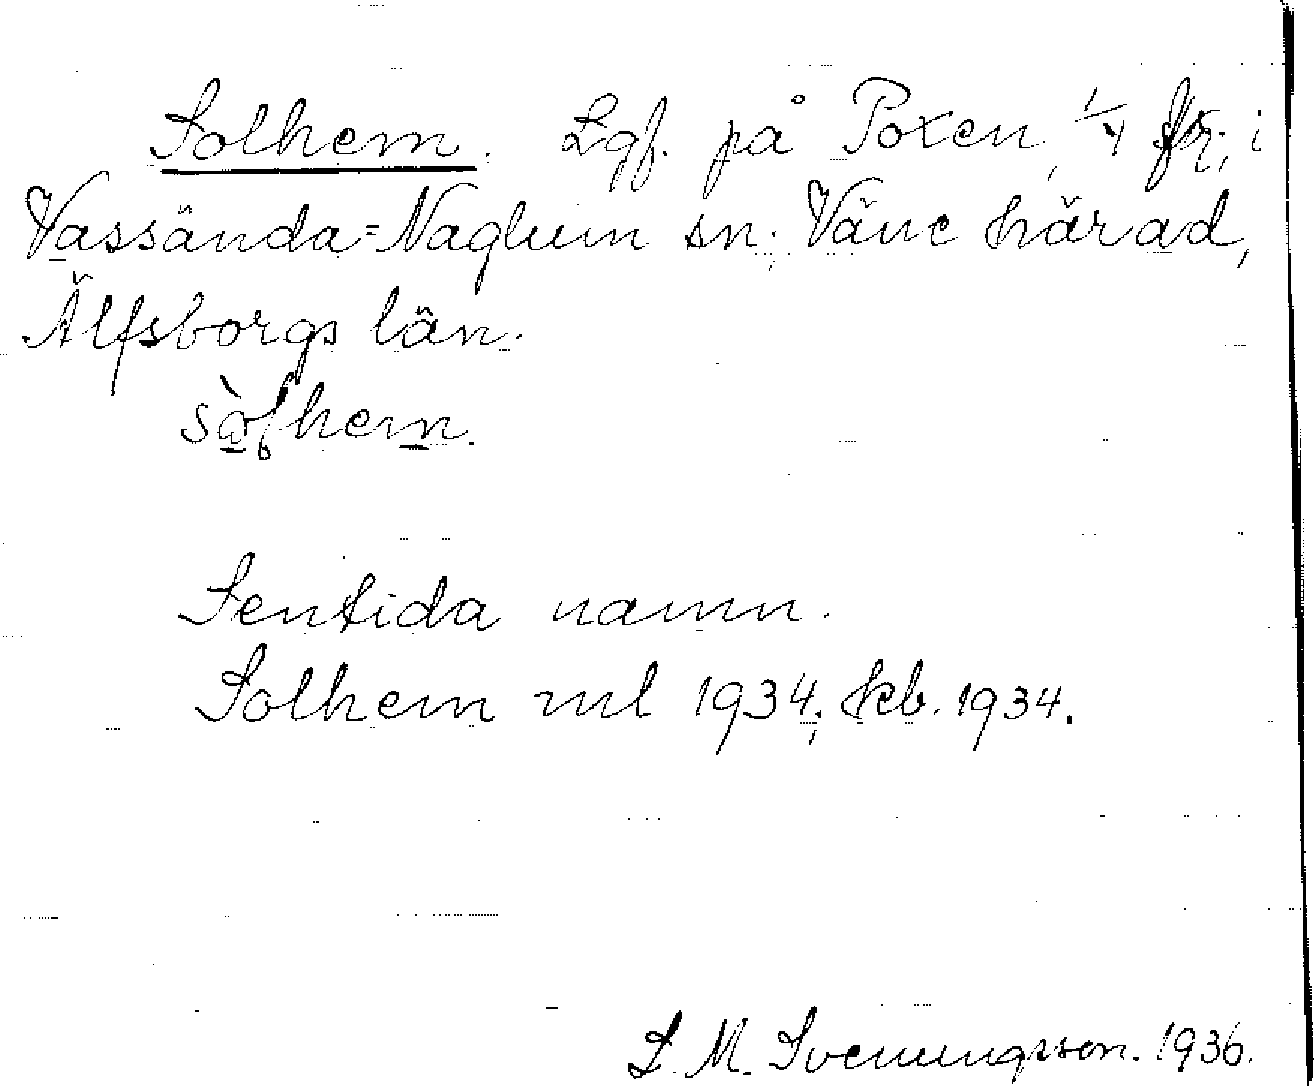 Solhem. Lgf. på Poxen, 1/4 fr, i
Vassända=Naglum sn. Väne härad,
Älfsborgs län.
Sentida namn.
Solhem ml 1934; kb. 1934.
S. M. Svenungsson. 1936.